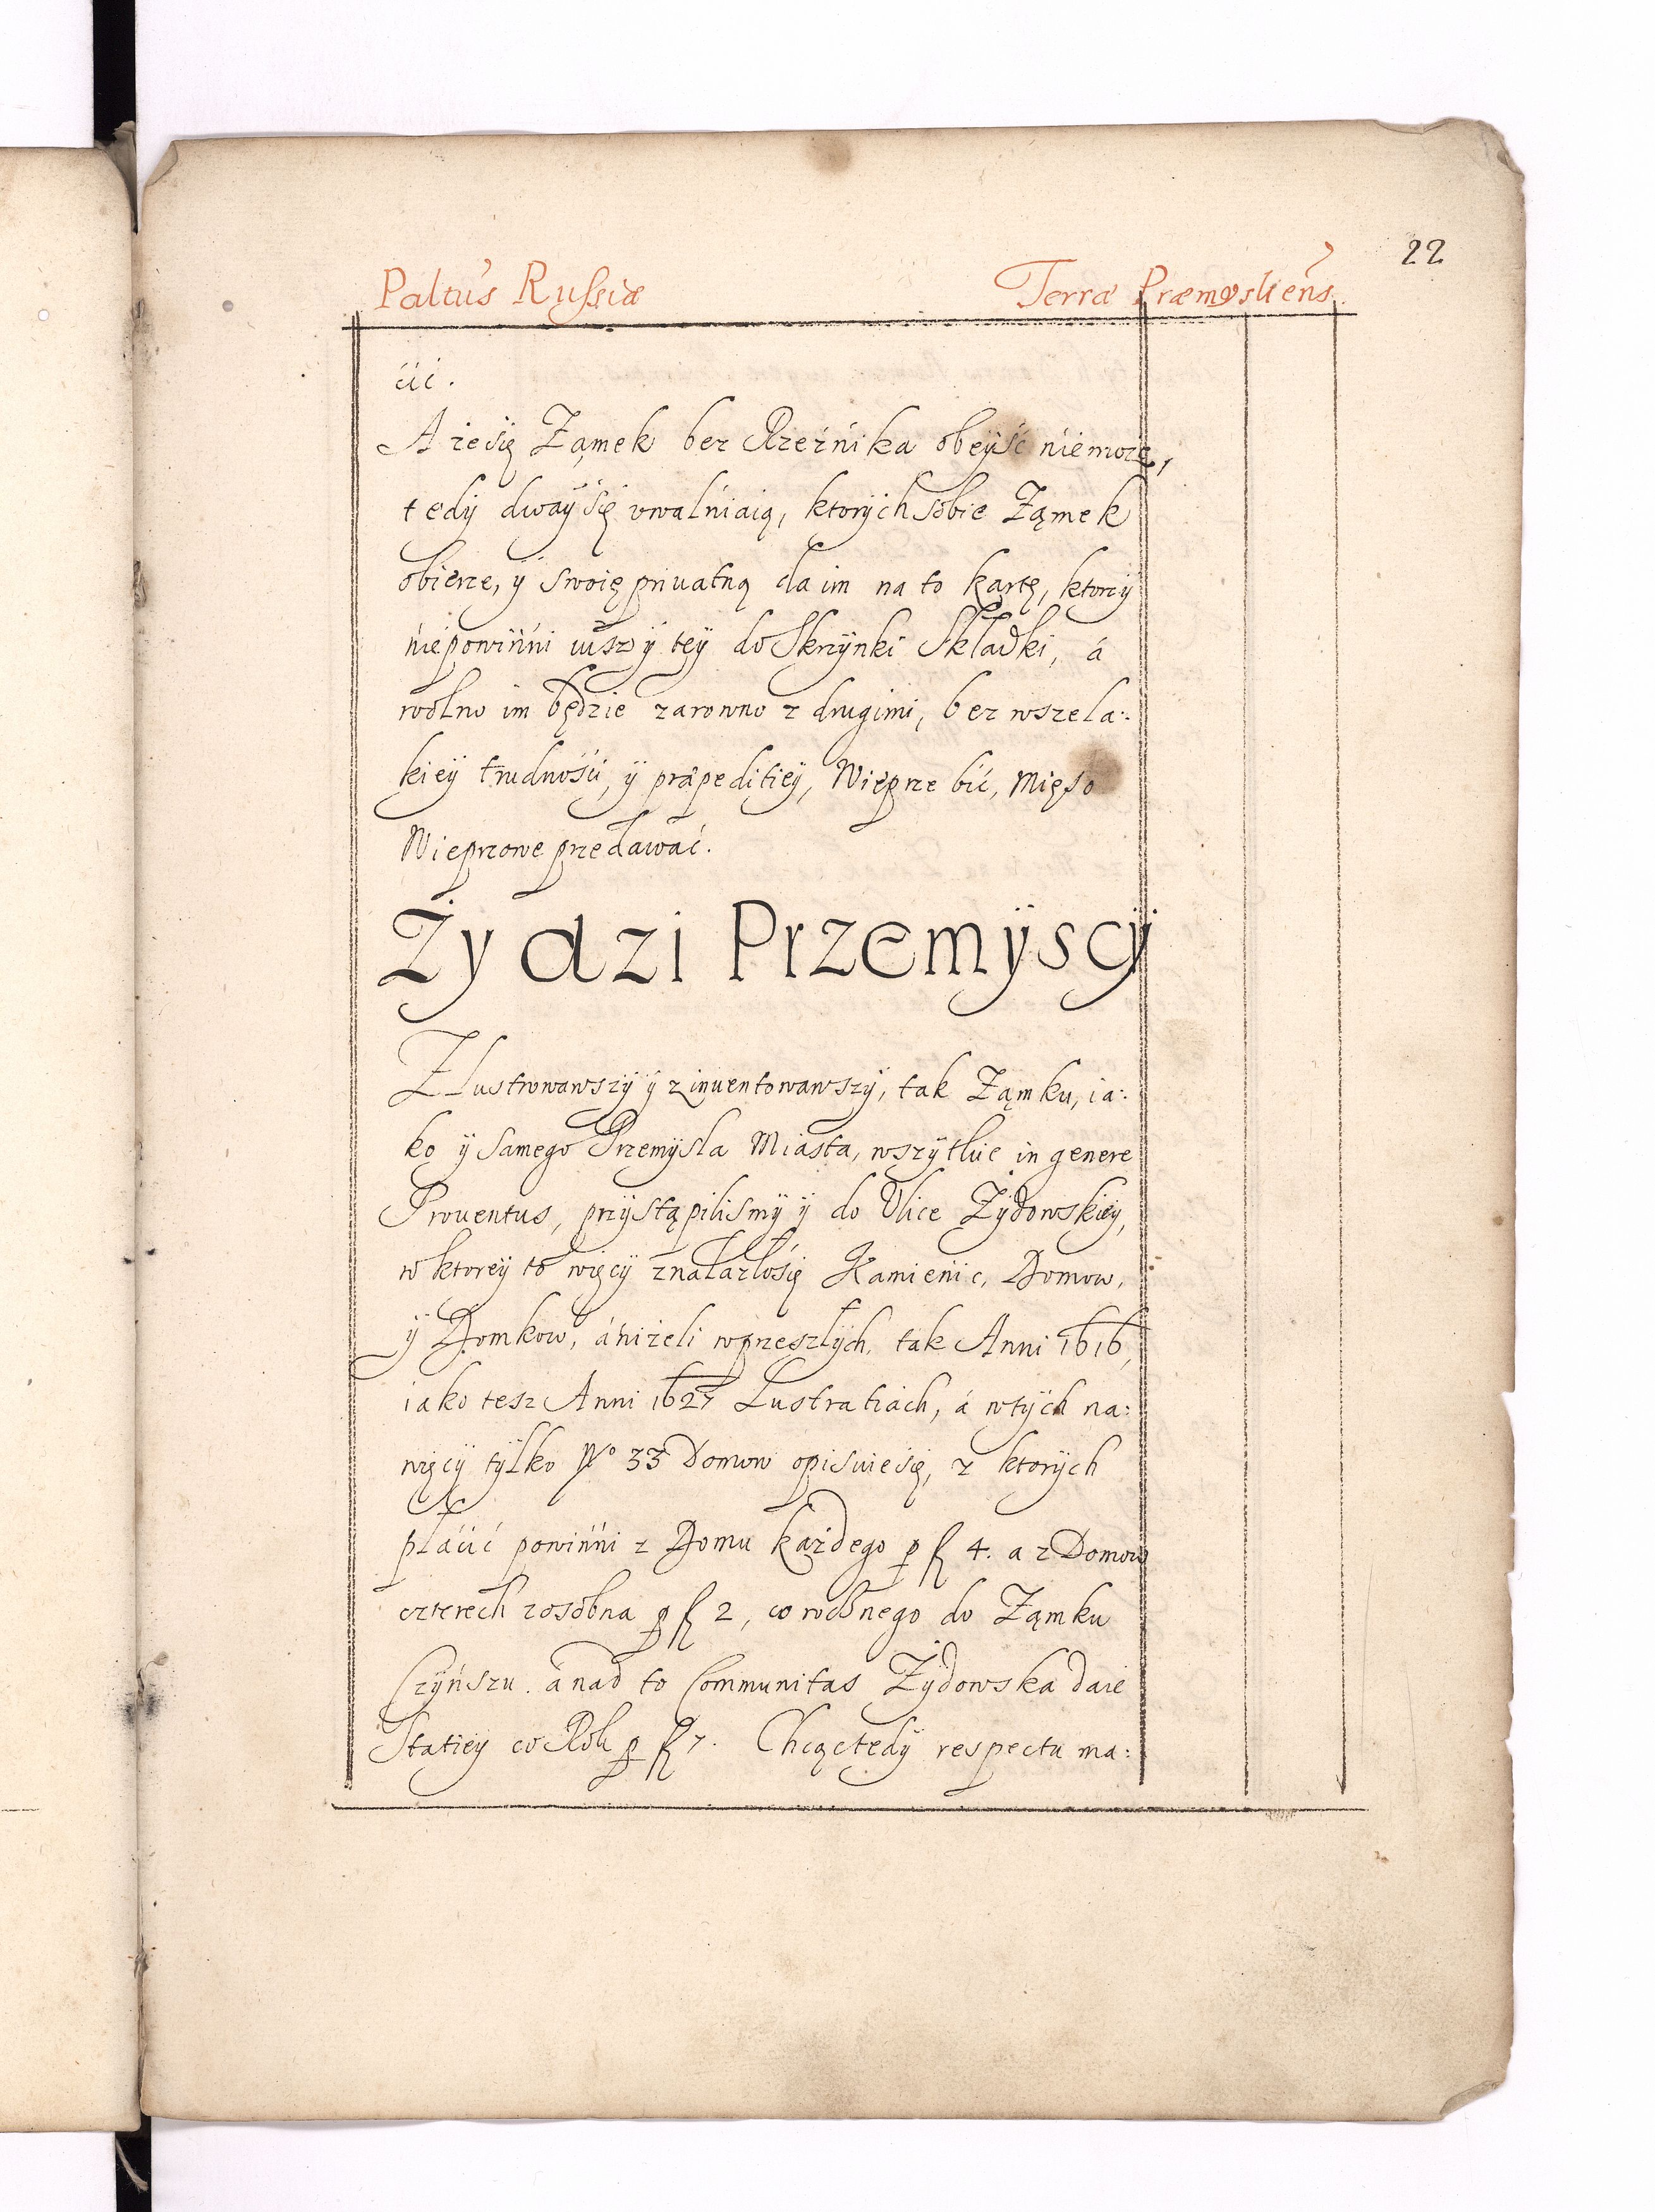 22
Paltus Russiæ Terræ Præmysliens
ćić.
A żesię Ząmek bez Rzeźnika obeyść niemoże,
tedÿ dwaÿ się vwalniaią, ktorÿch sobie Ząmek
obierze, ÿ swoię priuatną da im na to kartę, ktorzÿ
niepowinni iuszÿ teÿ do Skrzÿnki Składki, á
wolno im będzie zarowno z drugimi, bez wszela:
kieÿ trudnośći, ÿ præpeditieÿ, Wieprze bić, Mięso
Wieprzowe przedawać.
Żydzi Przemÿscÿ
Zlustrowawszÿ ÿ zinuentowawszÿ, tak Ząmku, ia:
ko ÿ samego Przemÿsla Miasta, wszÿtkie in genere
Prouentus, przÿstąpilismÿ ÿ do Vlice Żÿdowskieÿ,
w ktoreÿ to więcÿ znalazłosię Kamienic, Domow,
ÿ Domkow, ániżeli wprzeszłÿch, tak Anni 1616,
iako tesz Anni 1627 Lustratiach, á wtÿch na:
więcÿ tÿlko No 33 Domow opisuiesię, z ktorÿch
płáćić powinni z Domu każdego p fl 4. a z Domow
czterech zosobna p fl 2, corocznego do Ząmku
Czÿnszu. á nad to Communitas Żÿdowska daie
Statieÿ co Rok p fl 7. Chcąc tedÿ respectu ma: